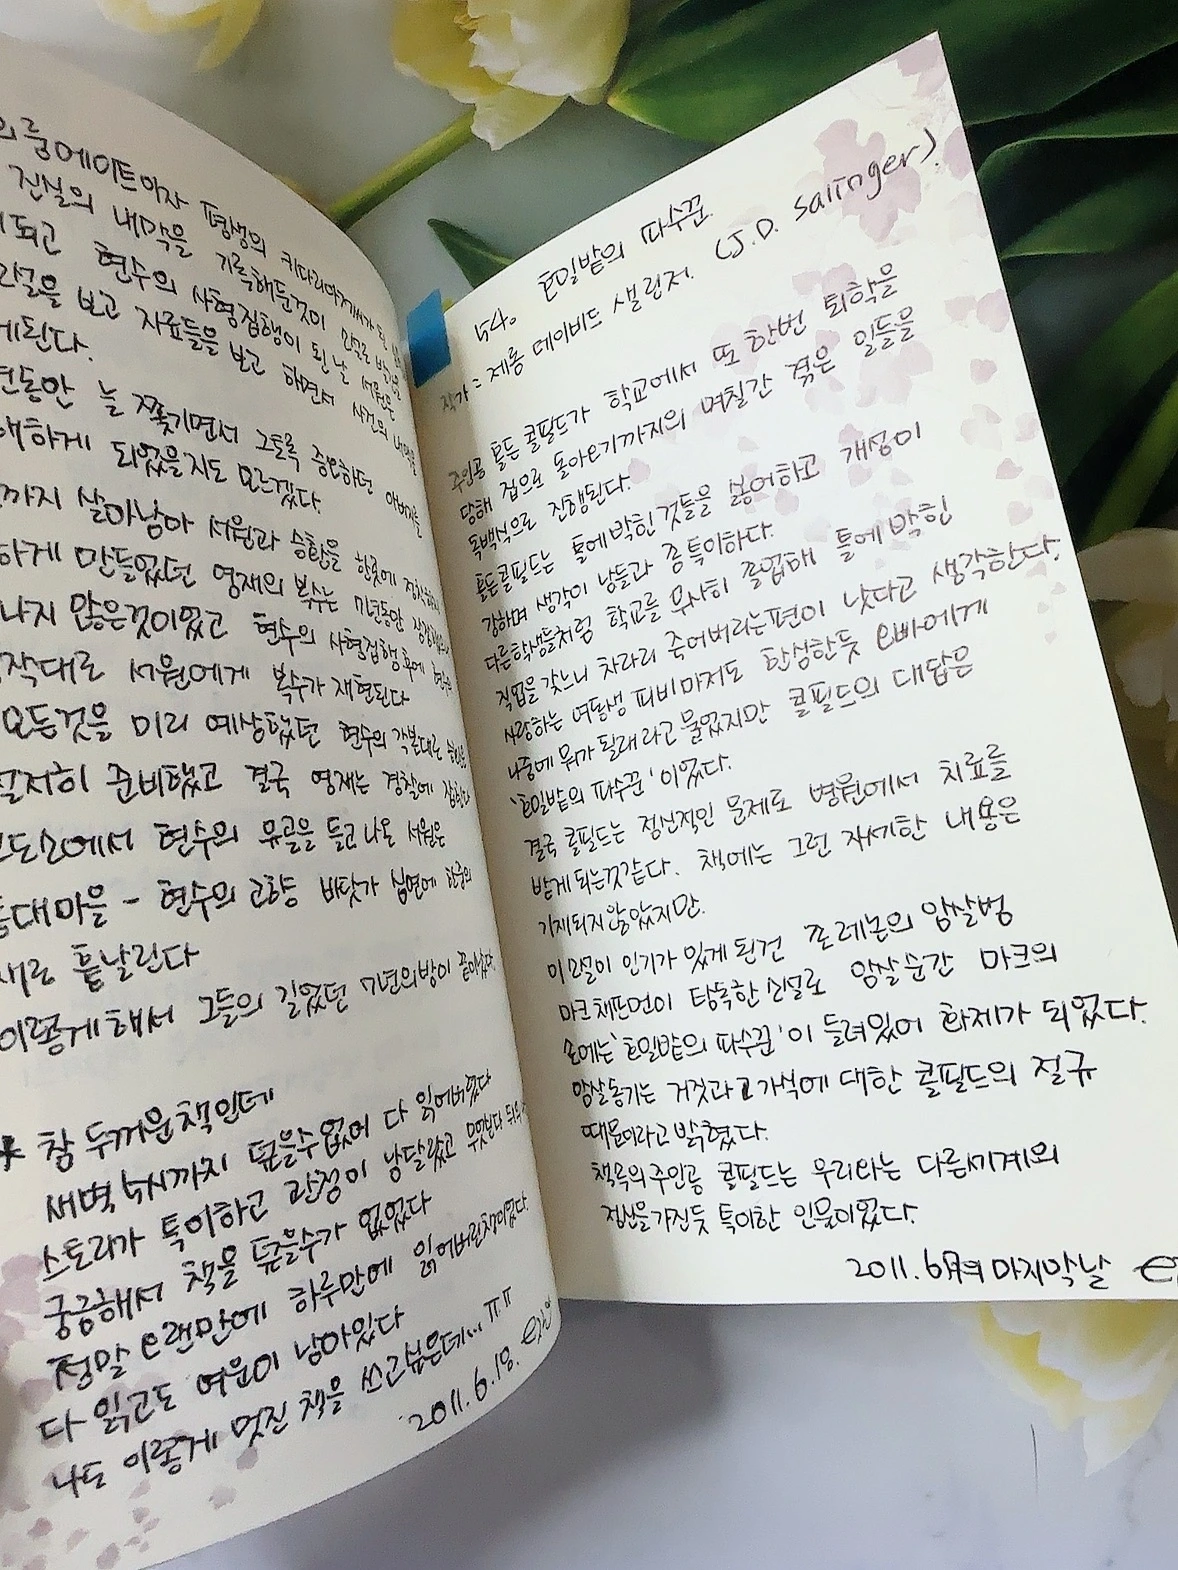 룸에이트이자 평생의 키다리아저씨가
진실의 내막을 기록해둔것이
되고 현수의 사형집행이 된 날 서원은
소설을 보고 자료들을 보고 하면서 사건의 내막을
게된다.
년동안 늘 쫓기면서 그토록 증오하던 아버지를
해하게 되었을지도 모르겠다.
까지 살아남아 서원과 승환을 한곳에
하게 만들었던 영재의 복수는 7년동안
나지 않은것이였고 현수의 사형집행후에
작대로 서원에게 복수가 재현된다
모든것을 미리 예상했던 현수의 각본대로
철저히 준비했고 결국 영재는 경찰에
교도소에서 현수의 유골을 들고 나온 서원은
등대마을 - 현수의 고향 바닷가 심연에
새로 흩날린다
이렇게해서 그들의 길었던 7년의밤이 끝이났다.
* 참 두꺼운책인데
새벽 5시까지 덮을수없어 다 읽어버렸다
스토리가 특이하고 관점이 남달랐고 무엇보다
궁금해서 책을 덮을수가 없었다
정말 오랜만에 하루만에 읽어버린책이었다.
다 읽고도 여운이 남아있다
나도 이렇게 멋진 책을 쓰고싶은데... ㅠㅠ
2011.6.18.
540. 호밀밭의 파수꾼.
작가 : 제롬 데이비드 샐린저. (J.D. Salinger).
주인공 홀든 콜필드가 학교에서 또 한번 퇴학을
당해 집으로 돌아오기까지의 며칠간 겪은 일들을
독백식으로 진행된다.
홀든콜필드는 틀에박힌것들을 싫어하고 개성이
강하며 생각이 남들과 좀 특이하다.
다른학생들처럼 학교를 무사히 졸업해 틀에박힌
직업을 갖느니 차라리 죽어버리는편이 낫다고 생각한다.
사랑하는 여동생 피비마저도 한심한듯 오빠에게
나중에 뭐가될래 라고 물었지만 콜필드의 대답은
'호밀밭의 파수꾼' 이었다.
결국 콜필드는 정신적인 문제로 병원에서 치료를
받게되는것같다. 책에는 그런 자세한 내용은
기재되지않았지만.
이 소설이 인기가 있게 된건 존레논의 암살범
마크채프먼이 탐독한 소설로 암살순간 마크의
손에는 '호밀밭의 파수꾼'이 들려있어 화제가 되었다.
암살동기는 거짓과 가식에 대한 콜필드의 절규
때문이라고 밝혔다.
책속의 주인공 콜필드는 우리와는 다른세계의
정신을가진듯 특이한 인물이었다.
2011.6월의 마지막날